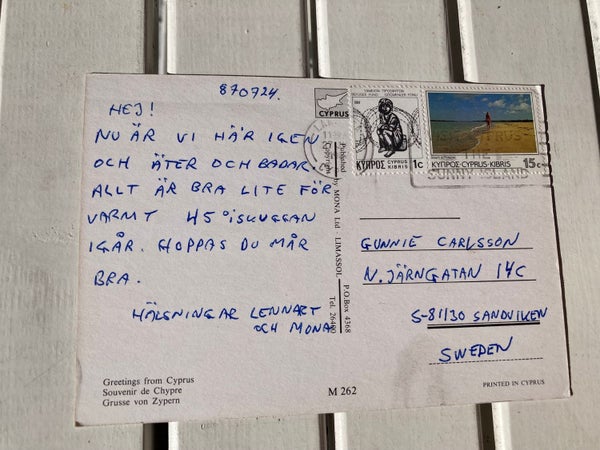 870724.
HEJ!
NU ÄR VI HÄR IGEN
OCH ÄTER OCH BADAR.
ALLT ÄR BRA LITE FÖR
VARMT 45° ISKUGGAN
IGÅR. HOPPAS DU MÅR
BRA.
HÄLSNINGAR LENNART
OCH MONA
Greetings from Cyprus
Souvenir de Chypre
Grusse von Zypern
M 262
Published by MONA Ltd - LIMASSOL P.O.Box 4368
Copyright Tel.
CYPRUS
ΚΥΠΡΟΣ CYPRUS KIBRIS 1c
ΚΥΠΡΟΣ-CYPRUS-KIBRIS 15c
SUNNY
GUNNIE CARLSSON
N. JÄRNGATAN 14C
S-81130 SANDVIKEN
SWEDEN
PRINTED IN CYPRUS